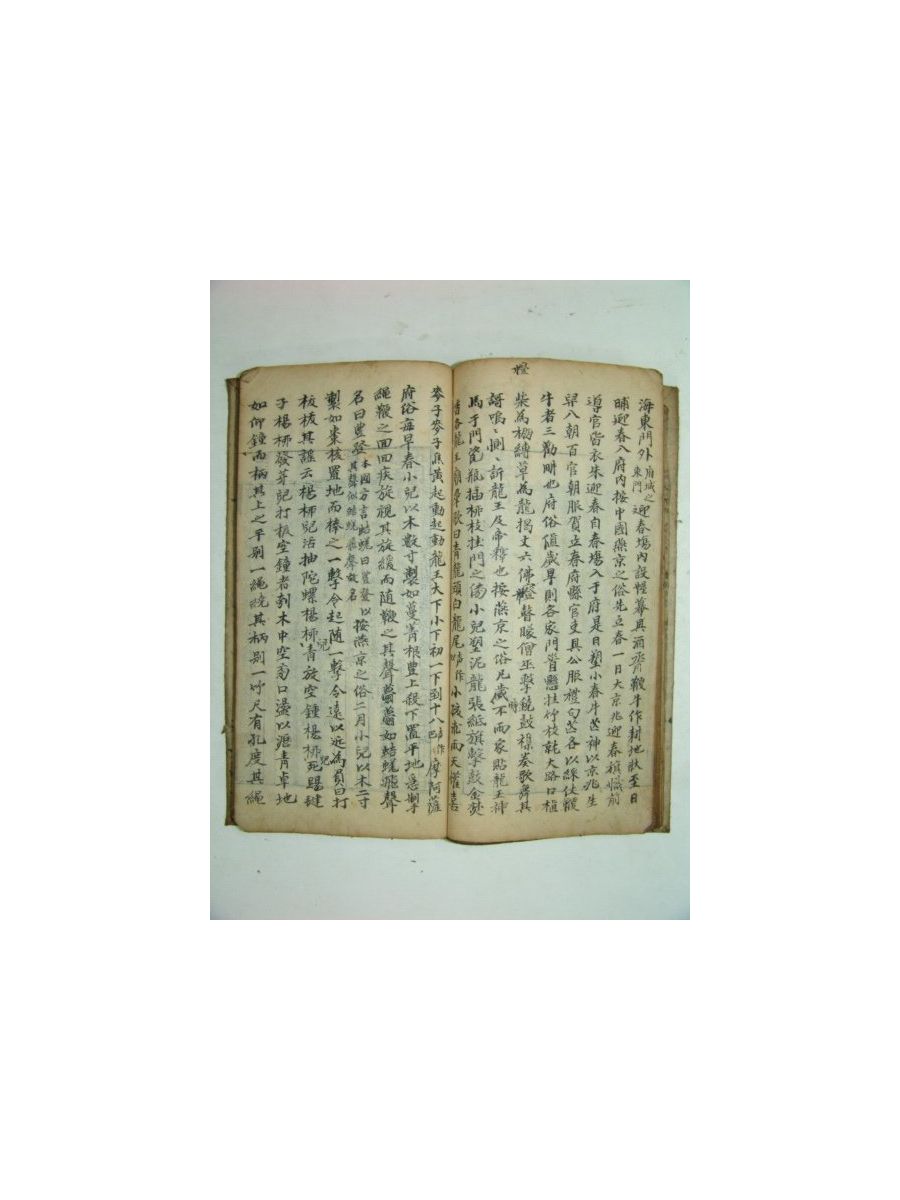 海東門外府城之東門迎春場內設幄幕具酒齊鞭牛作耕地狀至日
晡迎春入府內按中國燕京之俗先立春一日大京兆迎春旗幟前
導官皆衣朱迎春自春場入于府是日塑小春牛芒神以京兆生
舁入朝百官朝服賀立春府縣官吏具公服禮句芒各以綵仗鞭
牛者三勸畊也府俗値歲旱則各家門首懸挂竹枝於大路口植
柴為棚縛草為龍揭丈六佛燈瞽曚僧巫擊鐃鼓標奏歌舞其
訝嗚嗚惻惻訢龍王及帝釋也按燕京之俗凡歲時不雨家貼龍王神
馬于門瓷甁揷柳枝挂門之傍小兒塑泥龍張紙旗擊鼓金焚
香各龍王廟羣歌曰青龍頭白龍尾小孩求雨天懽喜
麥子麥子焦黃起動起動龍王大下小下初一下到十八摩阿薩
府俗每早春小兒以木數寸製如蔓菁根豊上殺下置平地急掣
繩鞭之面回疾旋視其旋緩而隨鞭之其聲薨薨如蜣蜣飛聲
名曰豊登本國方言蛣蜣曰豊登以其聲似蛣蜣飛聲故名按燕京之俗二月小兒以木二寸
製如棗核置地而棒之一擊令起隨一擊令遠以近為負曰打
柭柭其謠云楊柳兒活抽陀螺楊柳兒青放空鍾楊柳兒死踢毽
子楊柳發芽兒打柭空鐘者刳木中空旁口盪以瀝青卓地
如仰鐘而柄其上之平別一繩繞其柄別一竹尺有孔度其繩